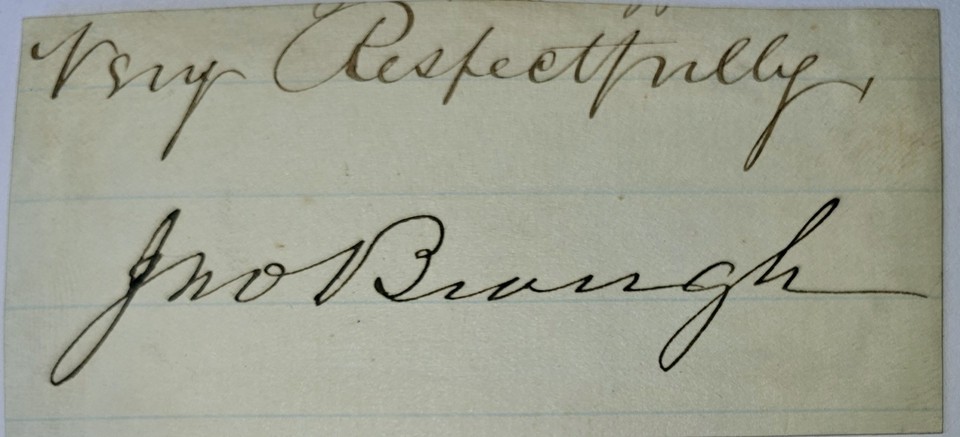 Very Respectfully,
Jno Brough